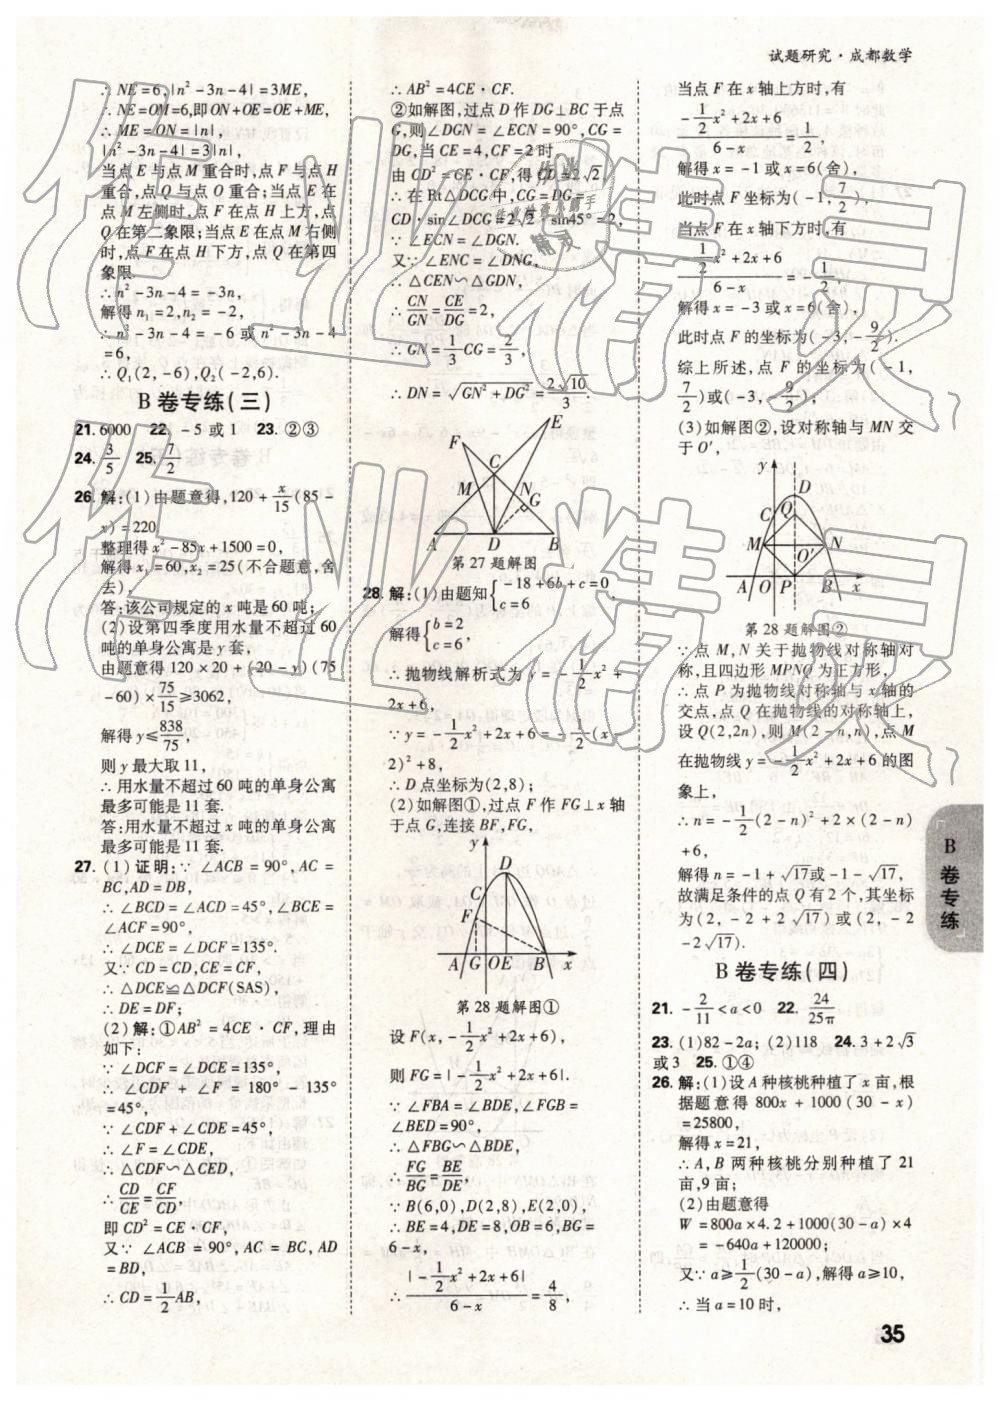 试题研究·成都数学
∴NE=6,|n²-3n-4|=3ME,
∴NE=OM=6,即ON+OE=OE+ME,
∴ME=ON=|n|,
|n²-3n-4|=3|n|,
当点E与点M重合时,点F与点H
重合,点Q与点O重合;当点E在
点M左侧时,点F在点H上方,点
Q在第二象限;当点E在点M右侧
时,点F在点H下方,点Q在第四
象限.
∴n²-3n-4=-3n,
解得n₁=2,n₂=-2,
∴n²-3n-4=-6或n²-3n-4
=6,
∴Q₁(2,-6),Q₂(-2,6).
B卷专练(三)
21. 6000 22. -5或1 23. ②③
24. 3/5 25. 7/2
26. 解:(1)由题意得,120+x/15(85-
x)=220,
整理得x²-85x+1500=0,
解得x₁=60,x₂=25(不合题意,舍
去),
答:该公司规定的x吨是60吨;
(2)设第四季度用水量不超过60
吨的单身公寓是y套,
由题意得120×20+(20-y)(75
-60)×75/15≥3062,
解得y≤838/75,
则y最大取11,
∴用水量不超过60吨的单身公寓
最多可能是11套.
答:用水量不超过x吨的单身公寓
最多可能是11套.
27. (1)证明:∵∠ACB=90°,AC=
BC,AD=DB,
∴∠BCD=∠ACD=45°,∠BCE=
∠ACF=90°,
∴∠DCE=∠DCF=135°.
又∵CD=CD,CE=CF,
∴△DCE≌△DCF(SAS),
∴DE=DF;
(2)解:①AB²=4CE·CF,理由
如下:
∵∠DCF=∠DCE=135°,
∴∠CDF+∠F=180°-135°
=45°,
∵∠CDF+∠CDE=45°,
∴∠F=∠CDE,
∴△CDF∽△CED,
∴CD/CE=CF/CD,
即CD²=CE·CF,
又∵∠ACB=90°,AC=BC,AD
=BD,
∴CD=1/2AB,
∴AB²=4CE·CF.
②如解图,过点D作DG⊥BC于点
G,则∠DGN=∠ECN=90°,CG=
DG,当CE=4,CF=2时,
由CD²=CE·CF,得CD=2√2,
∴在Rt△DCG中,CG=DG=
CD·sin∠DCG=2√2·sin45°=2,
∵∠ECN=∠DGN,
又∵∠ENC=∠DNG,
∴△CEN∽△GDN,
∴CN/GN=CE/DG=2,
∴GN=1/3CG=2/3,
∴DN=√(GN²+DG²)=2√10/3.
E
F
C
M
N
G
A
D
B
第27题解图
28. 解:(1)由题知{-18+6b+c=0, c=6
解得{b=2 c=6,
∴抛物线解析式为y=-1/2x²+
2x+6,
∵y=-1/2x²+2x+6=-1/2(x-
2)²+8,
∴D点坐标为(2,8);
(2)如解图①,过点F作FG⊥x轴
于点G,连接BF,FG,
y
D
C
F
A
G
O
E
B
x
第28题解图①
设F(x,-1/2x²+2x+6),
则FG=|-1/2x²+2x+6|.
∵∠FBA=∠BDE,∠FGB=
∠BED=90°,
∴△FBG∽△BDE,
∴FG/BG=BE/DE.
∵B(6,0),D(2,8),E(2,0),
∴BE=4,DE=8,OB=6,BG=
6-x,
∴|-1/2x²+2x+6|/(6-x)=4/8,
当点F在x轴上方时,有
(-1/2x²+2x+6)/(6-x)=1/2,
解得x=-1或x=6(舍),
此时点F坐标为(-1,7/2),
当点F在x轴下方时,有
(-1/2x²+2x+6)/(6-x)=-1/2,
解得x=-3或x=6(舍),
此时点F的坐标为(-3,-9/2).
综上所述,点F的坐标为(-1,
7/2)或(-3,-9/2),
(3)如解图②,设对称轴与MN交
于O′,
y
D
Q
C
M
N
O′
A
O
P
B
x
第28题解图②
∵点M,N关于抛物线对称轴对
称,且四边形MPNQ为正方形,
∴点P为抛物线对称轴与x轴的
交点,点Q在抛物线的对称轴上,
设Q(2,2n),则M(2-n,n),点M
在抛物线y=-1/2x²+2x+6的图
象上,
∴n=-1/2(2-n)²+2×(2-n)
+6,
解得n=-1+√17或-1-√17,
故满足条件的点Q有2个,其坐标
为(2,-2+2√17)或(2,-2
-2√17).
B卷专练(四)
21. -2/11<a<0 22. 24/25π
23. (1)82-2a;(2)118 24. 3+2√3
或3 25. ①④
26. 解:(1)设A种核桃种植了x亩,根
据题意得800x+1000(30-x)
=25800,
解得x=21,
∴A、B两种核桃分别种植了21
亩,9亩;
(2)由题意得
W=800a×4.2+1000(30-a)×4
=-640a+120000;
又∵a≥1/2(30-a),解得a≥10,
∴当a=10时,
B卷专练
35
作业精灵